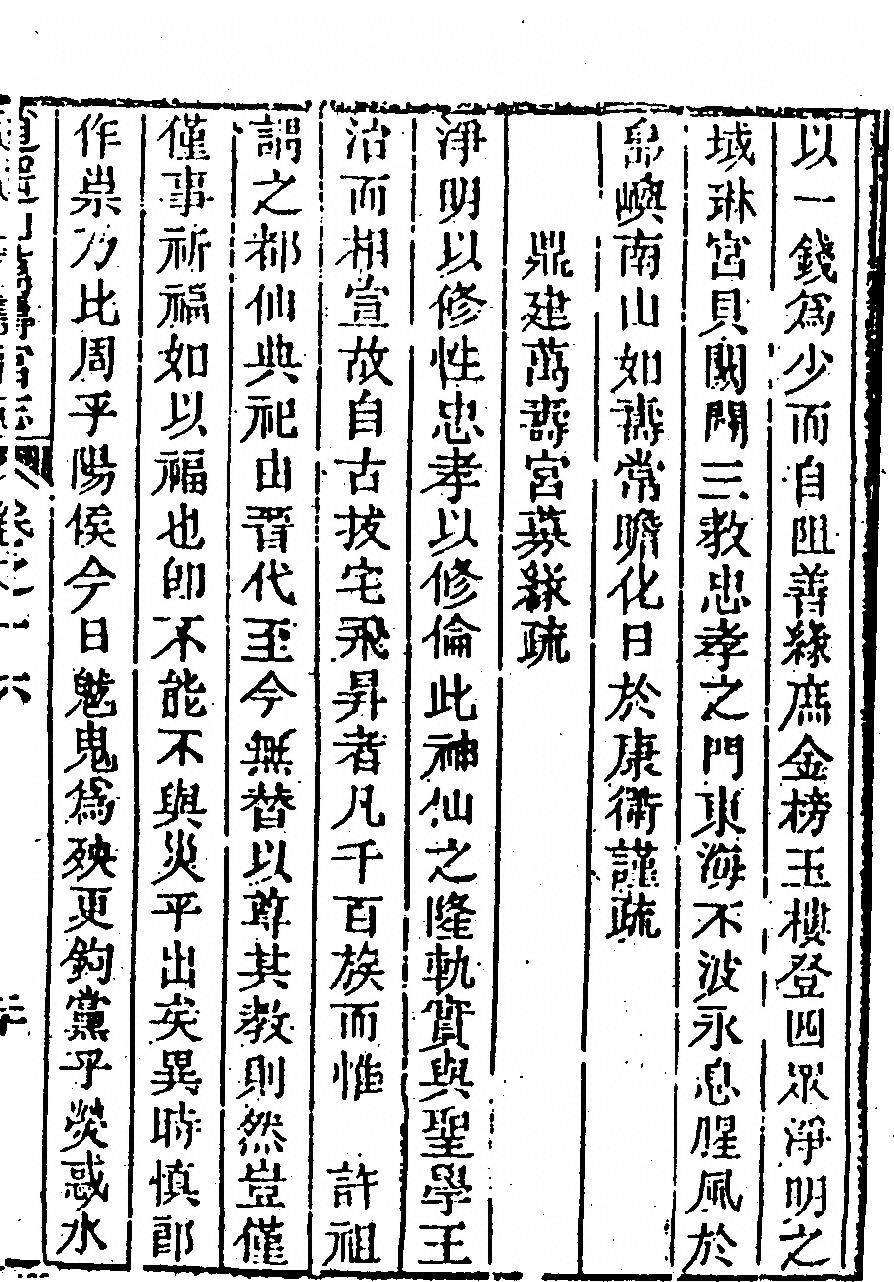 以一錢爲少而自阻善緣庶金榜玉樓登四眾淨明之
域琳宮貝闕開三教忠孝之門東海不波永息腥風於
島嶼南山如壽常瞻化日於康衢謹疏
鼎建萬壽宮募緣疏
淨明以修性忠孝以修倫此神仙之隆軌實與聖學王
治而相宣故自古拔宅飛昇者凡千百族而惟 許祖
謂之都仙典祀由晉代至今無替以尊其教則然豈僅
僅事祈福如以福也卽不能不與災平出矣異時慎郎
作祟乃比周乎陽侯今日魃鬼爲殃更鉤黨乎熒惑水
萬壽宮志 卷之十六